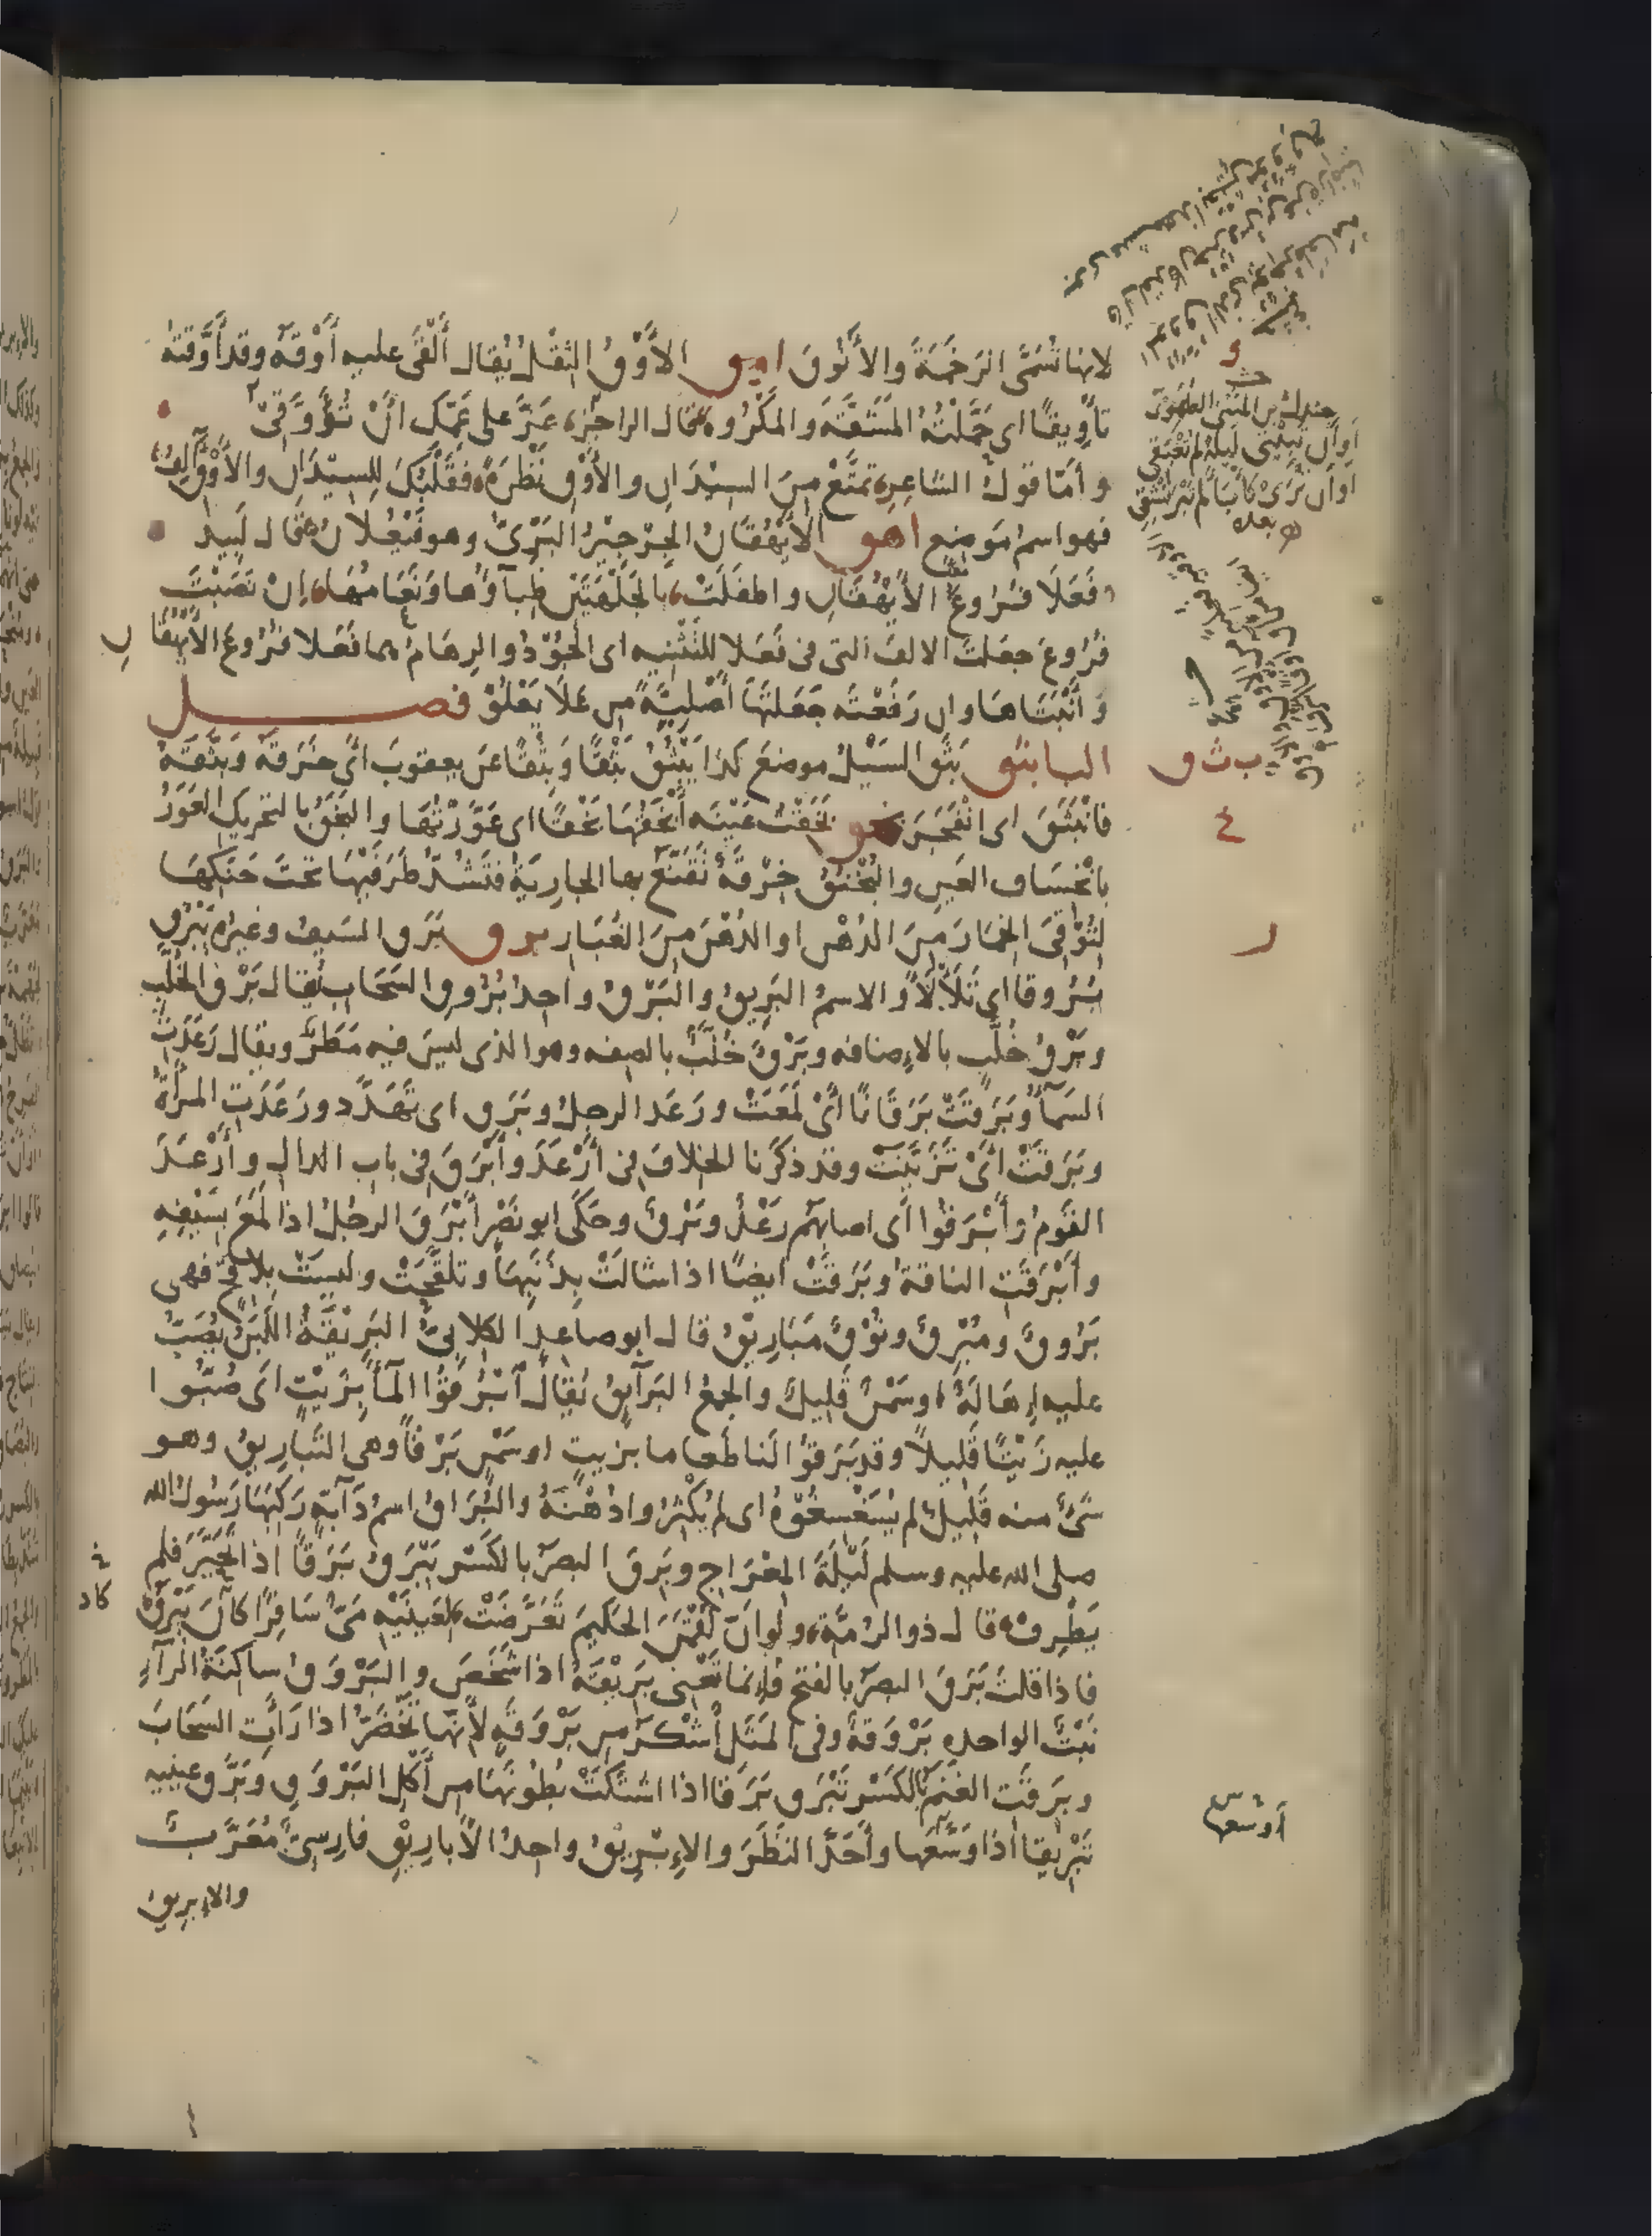 لانها تُسَمَّى الرَخَمَةَ والأَنُوقَ اوق الأَوْقُ الثِقْلُ يُقال أَلْقَى عليه أَوْقَهُ وقد أَوَّقتهُ
تأوِيقًا اى حَمَّلْتُهُ المَشَقَّةَ والمَكْرُوهَ قال الراجز عَزَّ على عَمِّكِ انْ تُؤَوَّقِى
وأمّا قولُ الشاعرِ تمتَّعْ مِنَ السِيْدانِ والأَوْقِ نَظْرَةً فقَلْبُكَ للسِيْدانِ والأَوْقِ آلِفُ
فهو اسمُ مَوضِعٍ اهق الأَيْهُقَانُ الجِرْجِيْرُ البَرِّىُّ وهو فَيْعُلانُ قال لَبِيد
فَعَلَا فُرُوعُ الأَيْهُقَانِ واطفَلَتْ بالجَلْهَتَيْنِ ظِبآؤُها ونَعَامُها إنْ نَصَبْتَ
فُرُوعَ جعلتَ الالفَ التى فى فَعَلا للتَثْنِيه اى الجَوْدُ والرِهَامُ هما فَعَلا فُرُوعَ الأَيْهُقَانِ
وأَنْبَتَاها وان رَفَعْتَه جَعَلتَهَا أَصْلِيَّةً من عَلَا يَعْلُوْ فصل
البا بثق بَثَقَ السَيْلُ موضعَ كذا يَبْثُقُ بَثْقًا وبِثْقًا عن يعقوبَ أى خَرَقَهُ وبَثَّقَهُ
فانْبَثَقَ اى انْفَجَرَ بخق بَخَقْتُ عَيْنَه أَبْخَقُهَا بَخْقًا اى عَوَّرْتُهَا والبَخَقُ بالتحريك العَوَرُ
بانْخِسَاف العَيْنِ والبُخْنُقُ خِرْقَةٌ تَقَنَّعُ بها الجاريَةُ فتَشُدُّ طَرَفَيْهَا تحتَ حَنَكِهَا
لتُوْقِىَ الخِمَارَ مِنَ الدُهْنِ او الدُهْنَ مِنَ الغُبَارِ برق بَرَقَ السَيفُ وغيرُه يَبْرُقُ
بُرُوقا اى تَلَأْلَأَ والاسمُ البَرِيقُ والبَرْقُ واحدُ بُرُوقِ السَحَابِ يُقال بَرْقُ الخُلَّبِ
وبَرْقُ خُلَّبٍ بالإضافه وبَرْقٌ خُلَّبٌ بالصفه وهو الذى ليسَ فيه مَطَرٌ ويقال رَعَدَتِ
السَمآءُ وبَرَقَتْ بَرَقَانًا أى لَمَعَتْ ورَعَدَ الرجلُ وبَرَقَ اى تَهَدَّدَ ورَعَدَتِ المرأَةُ
وبَرَقَتْ أىْ تَزَيَّنَتْ وقد ذكَرْنا الخلافَ فى أَرْعَدَ وأَبْرَقَ فى باب الدال وأَرْعَدَ
القَومُ وأَبْرَقُوا أى اصابهُم رَعْدٌ وبَرْقٌ وحَكَى ابو نَصْر أَبْرَقَ الرجُلُ اذا لَمَعَ بسَيْفِهِ
وأَبْرَقَتِ الناقةُ وبَرَقَتْ ايضًا اذا شالَتْ بِذَنَبِهَا وتلقَّحَتْ وليسَتْ بلاقحٍ فهى
بَرُوقٌ ومُبْرِقٌ ونُوْقٌ مَبَارِيْقُ قال ابو صاعدٍ الكلابىُّ البَرِيْقَةُ اللَبَنُ يُصَبُّ
عليه إهَالَةٌ اوسَمْنٌ قَلِيلٌ والجمعُ البَرآئقُ يُقالُ آبْرُقُوْا المآءَ بزَيْتٍ اى صُبُّوا
عليه زَيْتًا قَليلًا وقد بَرَقُوْا لَنا طَعاما بزيتٍ اوسَمْنٍ بَرْقًا وهى التَبارِيقُ وهو
شَىْءٌ منه قَلِيلٌ لم يُسَغْسِغُوْهُ اى لم يُكْثِرُوا دُهْنَهُ والبُرَاقُ اسمُ دَآبَّةٍ رَكِبَهَا رَسُولُ الله
صلى الله عليه وسلم لَيْلَةَ المِعْرَاجِ وبَرِقَ البصَرُ بالكَسْرِ يَبْرَقُ بَرَقًا اذا تَحَيَّرَ فلم
يَطْرِفْ قال ذو الرُمَّةِ ولَوانَّ لُقْمَنَ الحكيمَ تَعَرَّضَتْ لعَيْنَيْهِ مَىٌّ سَافِرًا كان يَبْرَقُ
فاذا قلتَ بَرَقَ البصَرُ بالفتح فإنما تَعْنِى بَرِيْقَهُ اذا شَخَصَ والبَرْوَقُ ساكنَةُ الرآءِ
نَبْتٌ الواحده بَرْوَقَةٌ وفى المَثَل أَشْكَرُ من بَرْوَقَةٍ لأنّها تَخْضَرُّ اذا رَأَتِ السَحَابَ
وبَرِقَتِ الغَنَمُ بالكَسْرِ تَبْرَقُ بَرَقا اذا اشتَكَتْ بُطُونَهَا من أَكْلِ البَرْوَقِ وبَرَّقَ عينيه
تَبْرِيقا اذا وَسَّعَها وأَحَدَّ النَظَرَ والإبْرِيْقُ واحدُ الأَبارِيْقِ فارِسىٌّ مُعَرَّبٌ
والإبريق
جندل بن المثنى الطهوى
أو أن تبيتى ليلة لم تغبقى
أو أن ترى كأباء لم تبرنشقى
ب ث ق
كاد
أوسعها